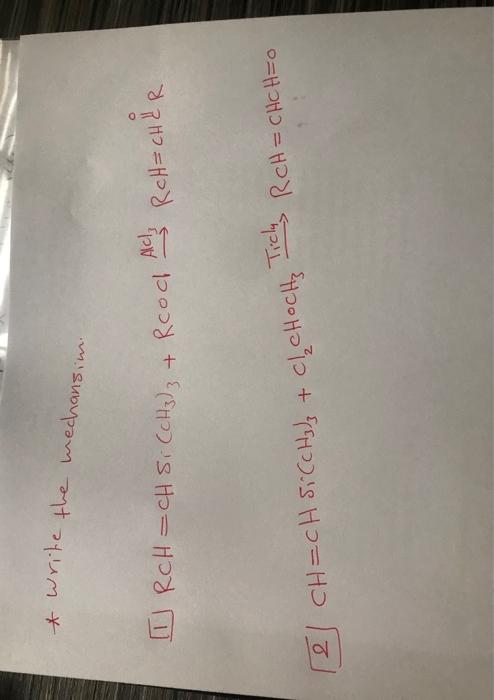 * Write the mechansim.
[1] RCH=CH Si(CH3)3 + RCOCl AlCl3→ RCH=CHCR
O
[2] CH=CH Si(CH3)3 + Cl2CHOCH3 TiCl4→ RCH=CHCH=O